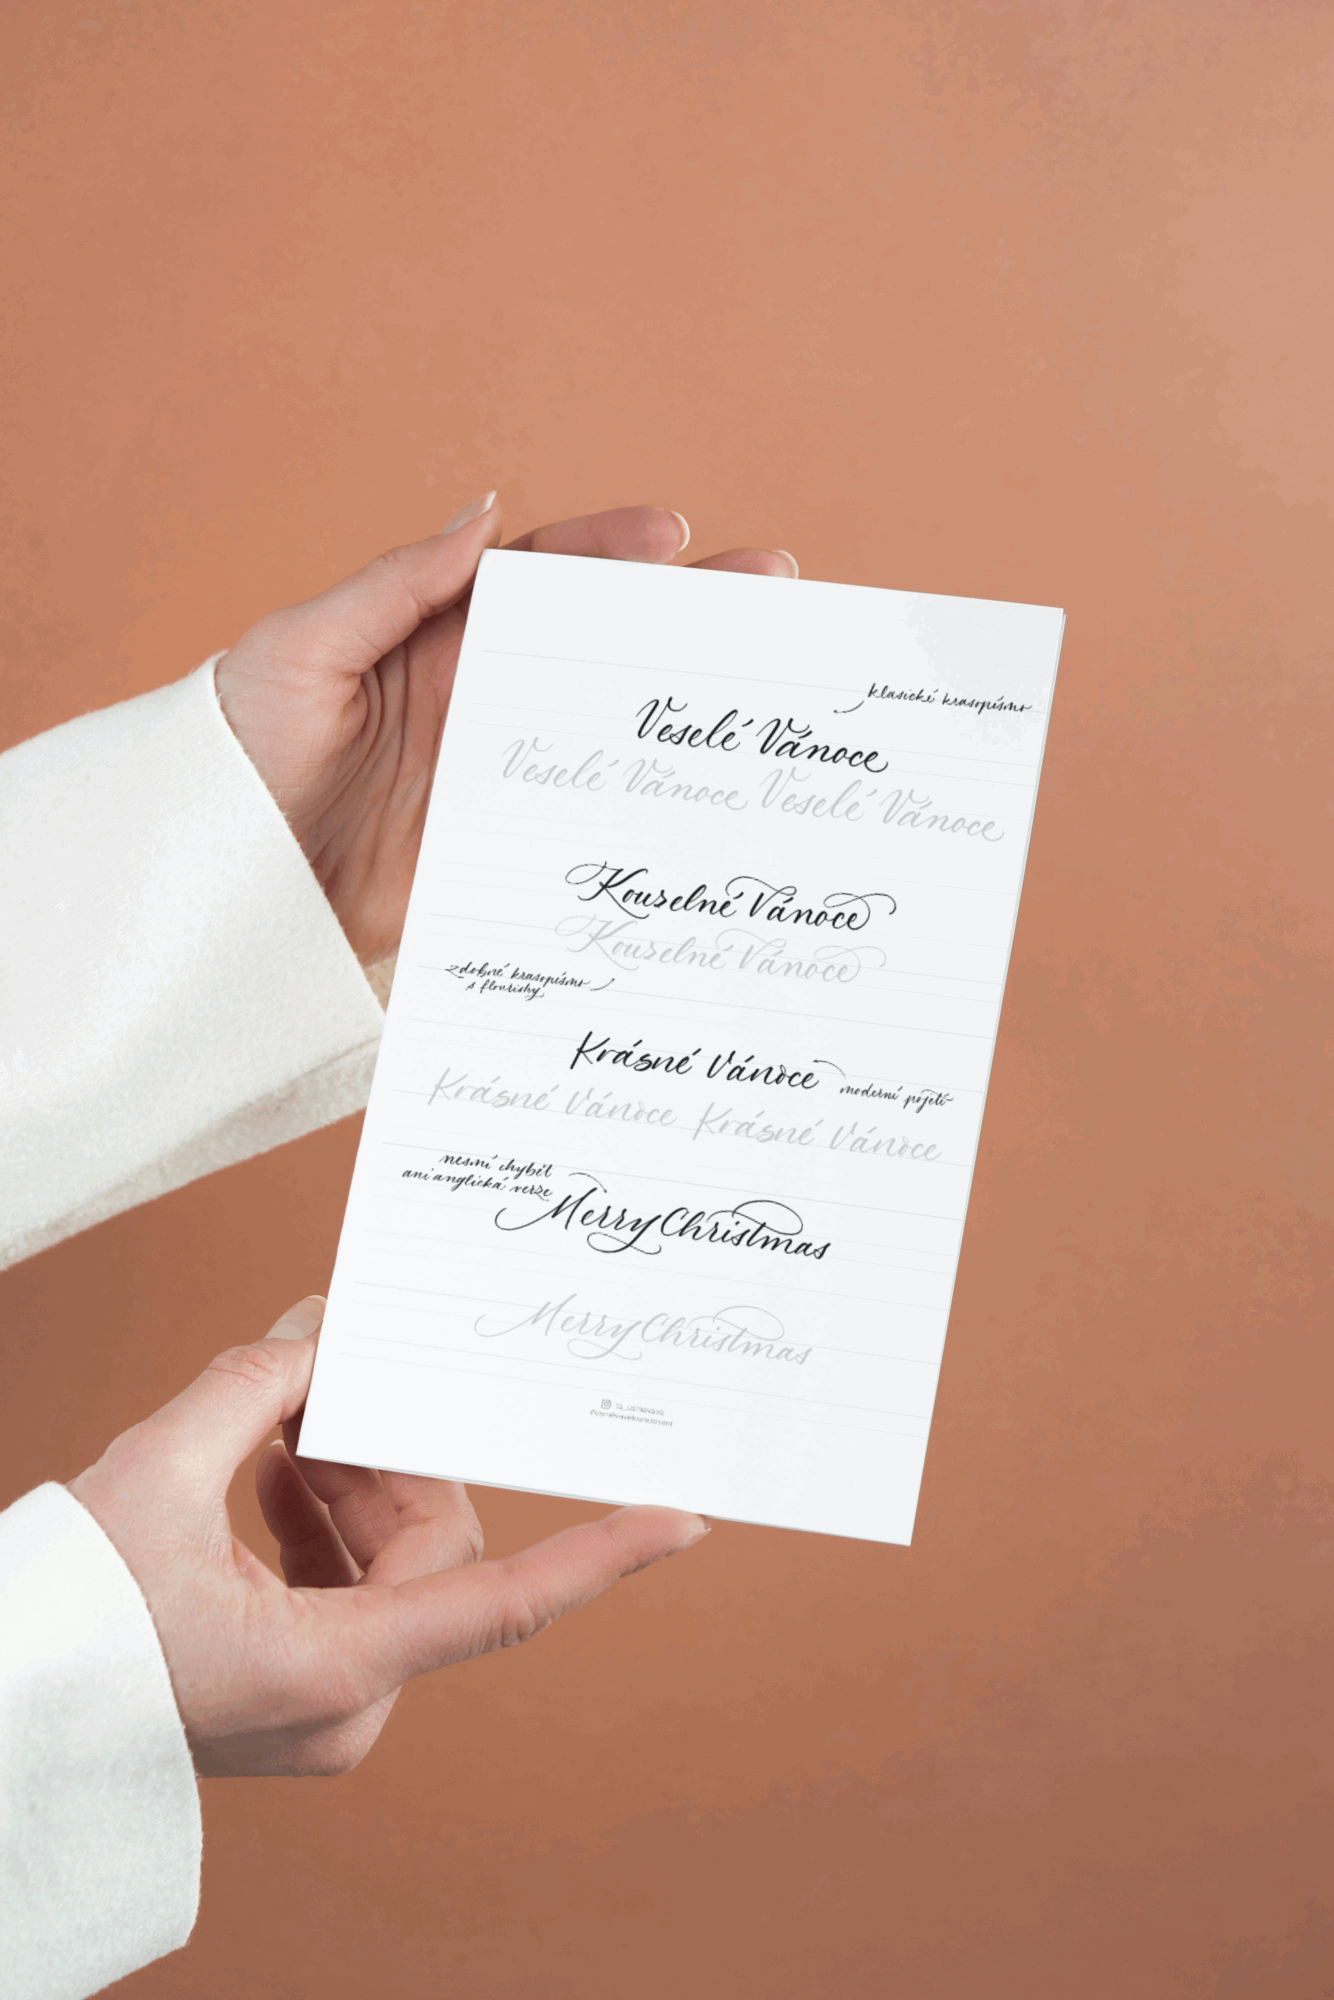 klasické krasopísmo
Veselé Vánoce
Veselé Vánoce Veselé Vánoce
Kouzelné Vánoce
Kouzelné Vánoce
zdobné krasopísmo
s flourishy
Krásné Vánoce
moderní pojetí
Krásné Vánoce Krásné Vánoce
nesmí chybět
ani anglická verze
Merry Christmas
Merry Christmas